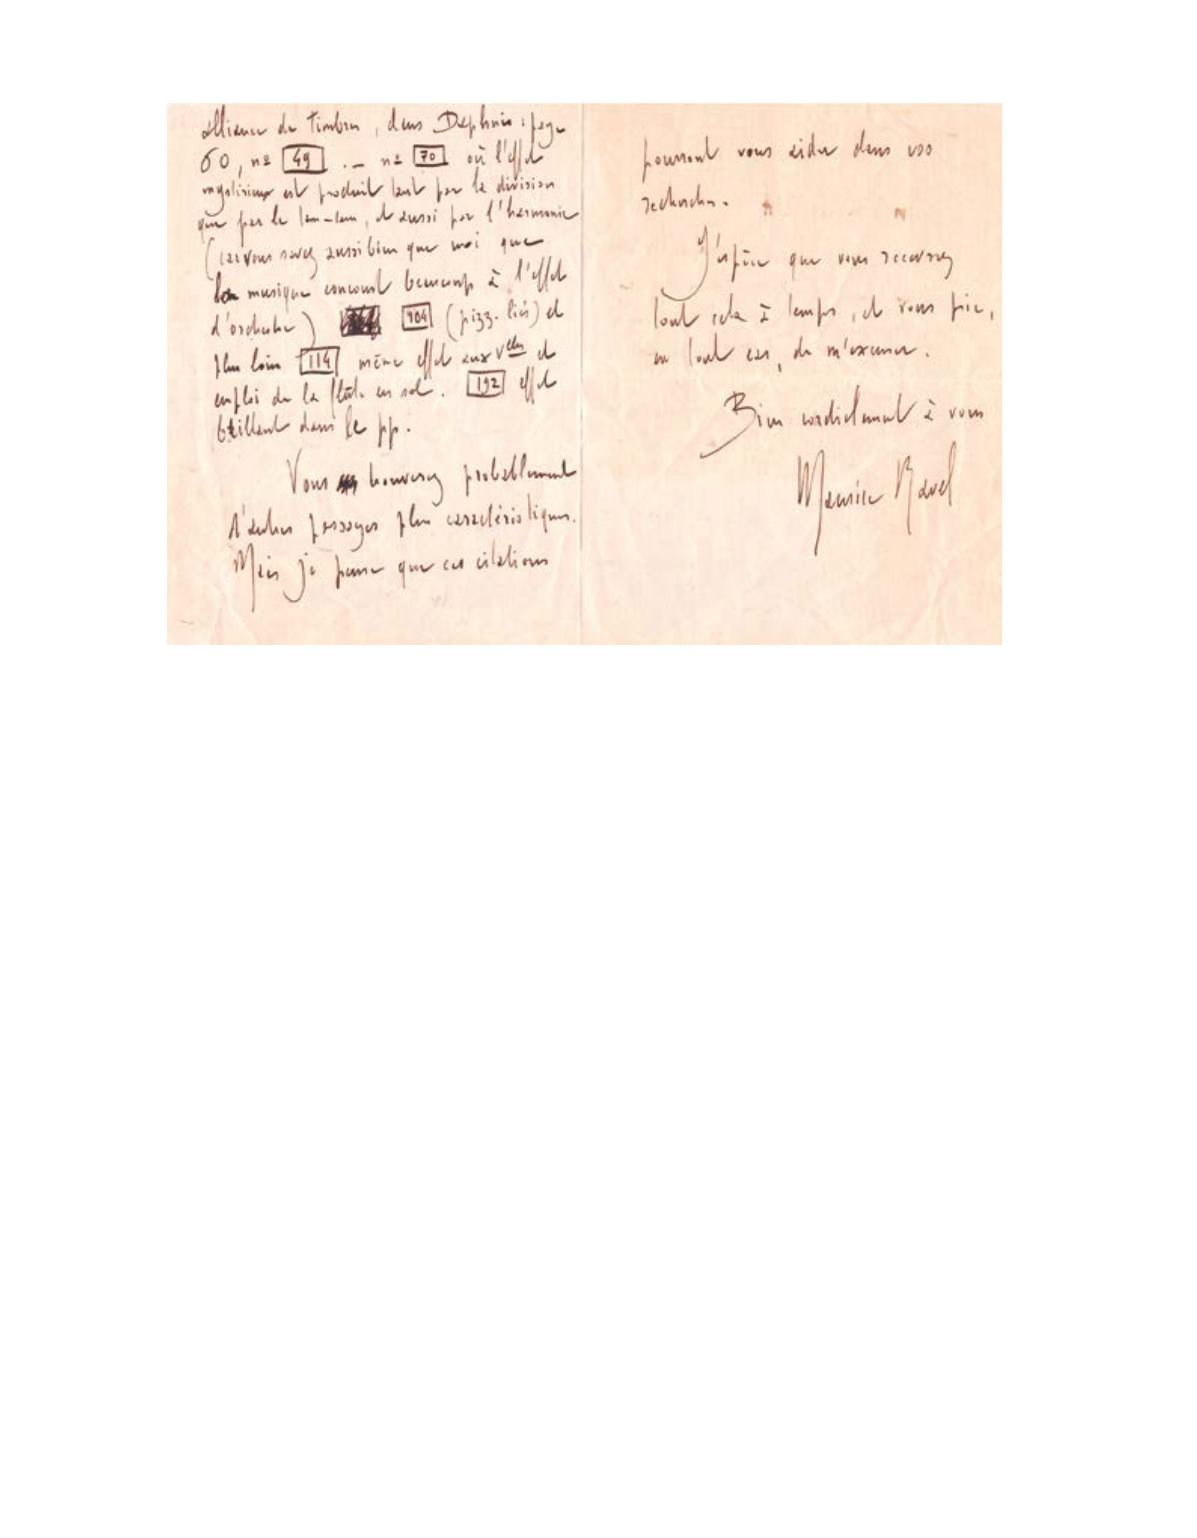 alliance de timbres, dans Daphnis : page
60, nº 49 . — nº 70 où l'effet
mystérieux est produit tant par la division
que par le tam-tam, et aussi par l'harmonie
(car vous savez aussi bien que moi que
la musique concourt beaucoup à l'effet
d'orchestre) 104 (pizz. liés) et
plus loin 114 même effet aux velles et
emploi de la flûte en sol. 192 effet
brillant dans le pp.
Vous trouverez probablement
d'autres passages plus caractéristiques.
Mais je pense que ces citations
pourront vous aider dans vos
recherches.
J'espère que vous recevrez
tout cela à temps, et vous prie,
en tout cas, de m'excuser.
Bien cordialement à vous
Maurice Ravel